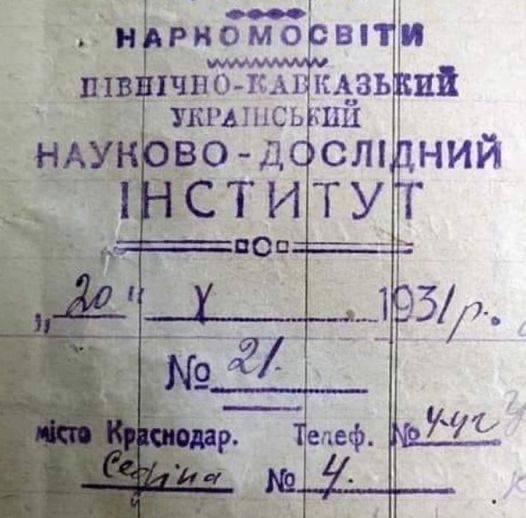 НАРКОМОСВІТИ
ПІВНІЧНО-КАВКАЗЬКИЙ
УКРАЇНСЬКИЙ
НАУКОВО-ДОСЛІДНИЙ
ІНСТИТУТ
„20" X 1931 р.
№ 21.
місто Краснодар. Телеф. № 4-42
Седіна № 4.